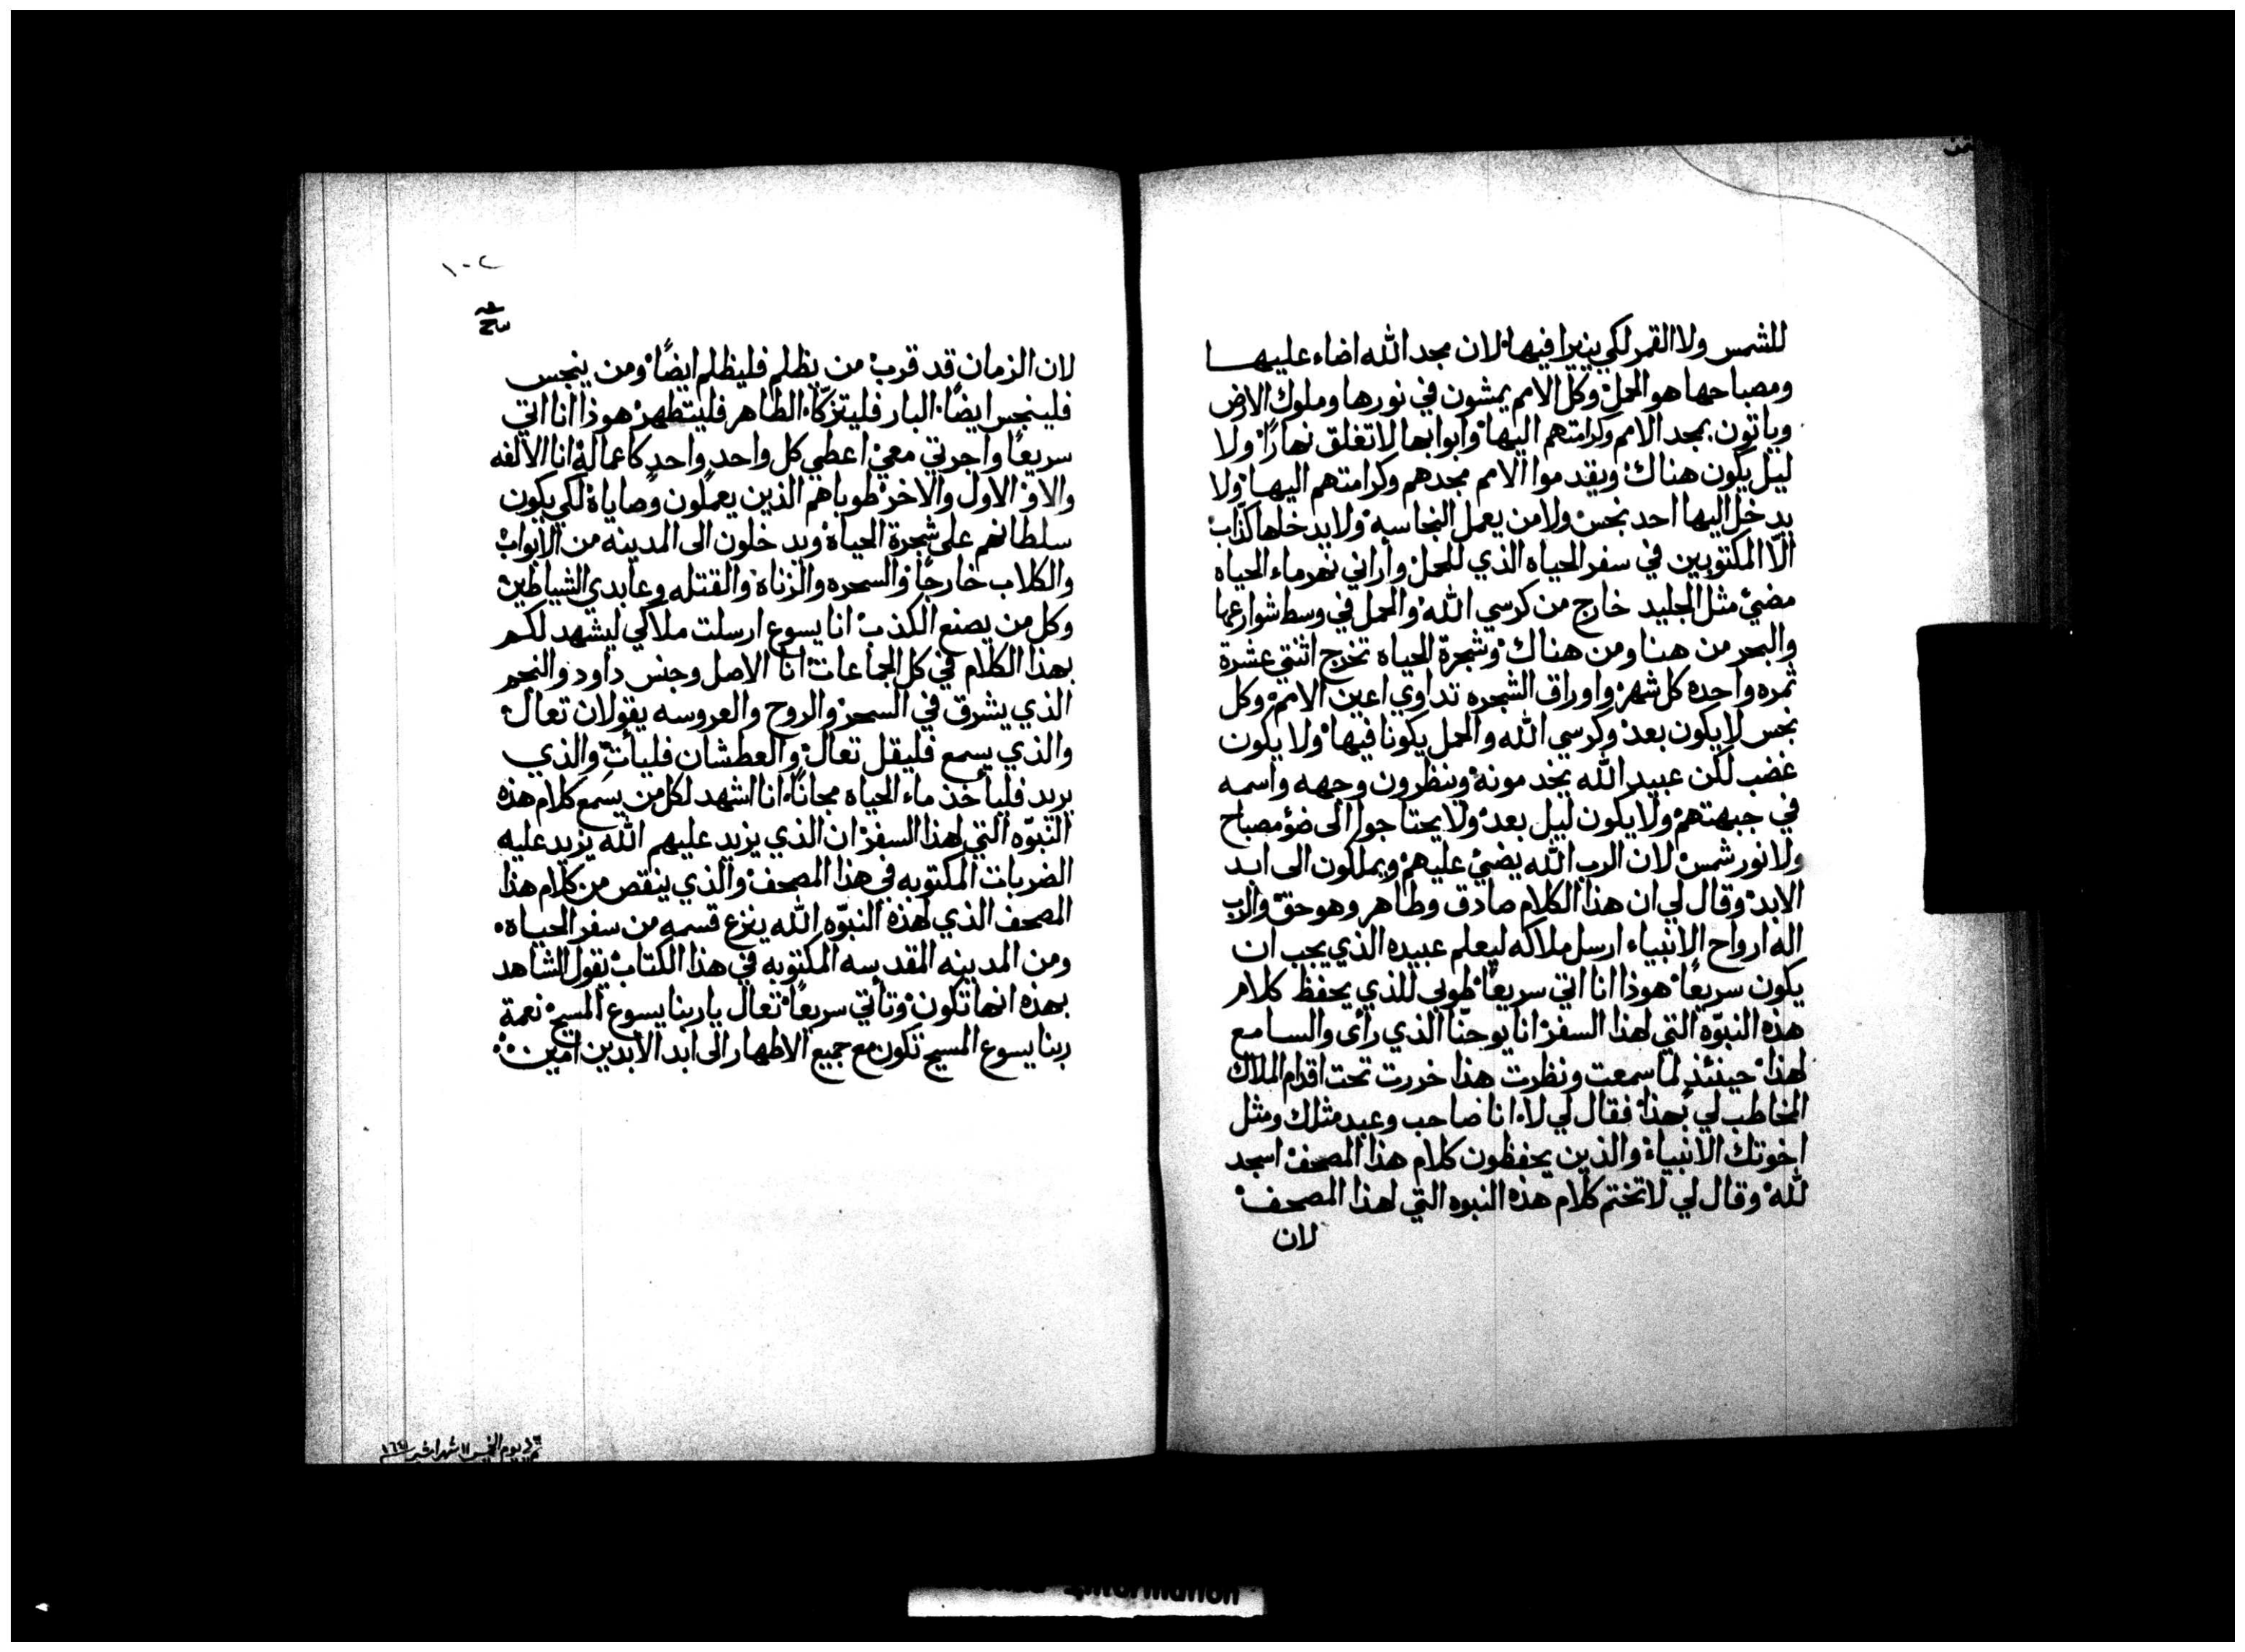 للشمس ولا القمر لكي ينيرا فيها. لان مجد الله اضاء عليها
ومصباحها هو الحمل. وكل الامم يمشون في نورها وملوك الارض
وياتون بمجد الامم وكرامتهم اليها. وابوابها لا تغلق نهارًا. ولا
ليل يكون هناك. ويقدموا الامم مجدهم وكرامتهم اليها. ولا
يدخل اليها احد نجس. ولا من يعمل النجاسه. ولا يدخلها كذّاب.
الّا المكتوبين في سفر الحياه الذي للحمل. واراني نهر ماء الحياه
مضئ مثل الجليد خارج من كرسي الله. والحمل في وسط شوارعها
والبحر من هنا ومن هناك. وشجرة الحياه تخرج اثنتي عشرة
ثمره واحده كل شهر. واوراق الشجره تداوي اعين الامم. وكل
نجس لا يكون بعد. وكرسي الله والحمل يكونا فيها. ولا يكون
غضب لكن عبيد الله يخدمونه. وينظرون وجهه واسمه
في جبهتهم. ولا يكون ليل بعد. ولا يحتاجوا الى ضؤ مصباح
ولا نور شمس. لان الرب الله يضئ عليهم. ويملكون الى ابد
الابد. وقال لي ان هذا الكلام صادق وطاهر وهو حق. والرب
اله ارواح الانبياء ارسل ملاكه ليعلم عبيده الذي يجب ان
يكون سريعًا. هوذا انا اتي سريعًا. طوبى للذي يحفظ كلام
هذه النبوّه التي لهذا السفر. انا يوحنّا الذي رأى والسامع
لهذا. حينئذٍ لما سمعت ونظرت هذا خررت تحت اقدام الملاك
المخاطب لي بهذا. فقال لي لا. انا صاحب وعبد مثلك ومثل
اخوتك الانبياء. والذين يحفظون كلام هذا المصحف. اسجد
لله. وقال لي لا تختم كلام هذه النبوه التي لهذا المصحف.
لان
١٠٢
لان الزمان قد قرب. من يظلم فليظلم ايضًا. ومن ينجس
فلينجس ايضًا. البار فليتزكّا. الطاهر فليتطهر. هوذا انا اتي
سريعًا واجرتي معي. اعطي كل واحد واحد كاعماله. انا الالفه
والاو. الاول والاخر. طوباهم الذين يعملون وصاياه. لكي يكون
سلطانهم على شجرة الحياه. ويدخلون الى المدينه من الابواب.
والكلاب خارجًا. والسحره والزناة. والقتله وعابدي الشياطين.
وكل من يصنع الكذب. انا يسوع ارسلت ملاكي ليشهد لكم
بهذا الكلام في كل الجماعات. انا الاصل وجنس داود. والنجم
الذي يشرق في السحر. والروح والعروسه يقولان تعال.
والذي يسمع فليقل تعال. والعطشان فليأتِ والذي
يريد فليأخذ ماء الحياه مجانًا. انا اشهد لكل من يسمع كلام هذه
النبوّه التي لهذا السفر. ان الذي يزيد عليهم الله يزيد عليه
الضربات المكتوبه في هذا المصحف. والذي ينقص من كلام هذا
المصحف الذي لهذه النبوّه الله ينزع قسمه من سفر الحياه.
ومن المدينه المقدسه المكتوبه في هذا الكتاب. يقول الشاهد
بهذه انها تكون. وتأتي سريعًا. تعال يا ربنا يسوع المسيح. نعمة
ربنا يسوع المسيح تكون مع جميع الاطهار الى ابد الابدين امين.